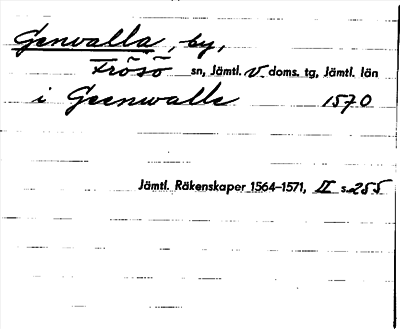 Genvalla, by,
Frösö sn, Jämtl. V doms. tg, Jämtl. län
i Geenwalle 1570
Jämtl. Räkenskaper 1564–1571, II s. 255